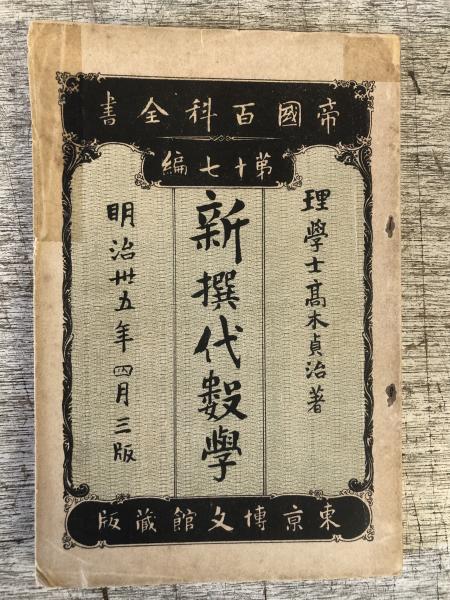 帝國百科全書
第十七編
理學士高木貞治著
新撰代數學
明治卅五年四月三版
東京博文館藏版